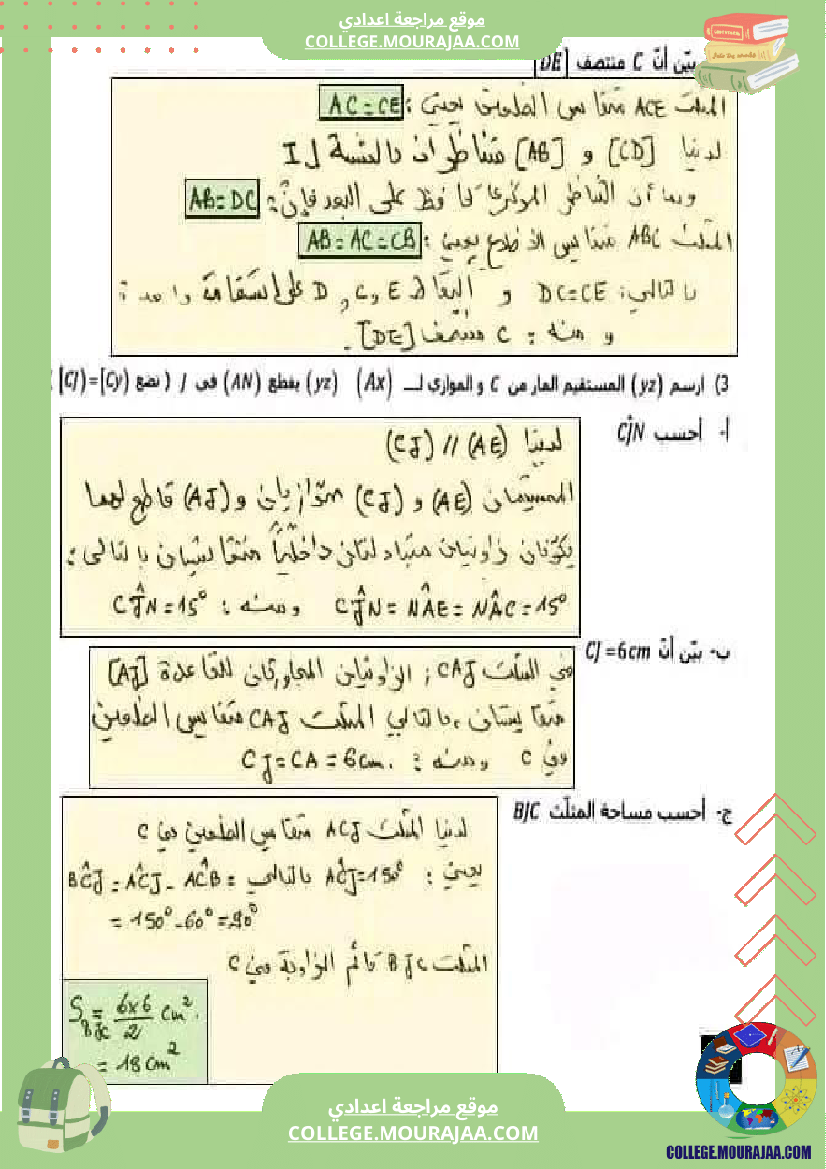 موقع مراجعة اعدادي
COLLEGE.MOURAJAA.COM
بيّن أنّ C منتصف [DE]
المثلث ACE متقايس الضلعين يعني : AC = CE
لدينا [CD] و [AB] متناظران بالنسبة ل I
وبما أن التناظر المركزي يحافظ على البعد فإنّ : AB = DC
المثلث ABC متقايس الأضلاع يعني : AB = AC = CB
بالتالي : DC = CE و النقاط D , C , E على استقامة واحدة :
و منه : C منتصف [DE].
3) ارسم (yz) المستقيم المار من C و الموازي لـ (Ax) (yz) يقطع (AN) في J ( نضع [CJ)=[Cy) )
أ- أحسب CĴN
لدينا (AE) // (CJ)
المستقيمان (AE) و (CJ) متوازيان و (AJ) قاطع لهما
يكوّنان زاويتان متبادلتان داخليّاً متقايستان بالتالي :
CĴN = NÂE = NÂC = 15° ومنه : CĴN = 15°
ب- بيّن أنّ CJ = 6cm
في المثلث CAJ ; الزاويتان المجاورتان للقاعدة [AJ]
متقايستان ، بالتالي المثلث CAJ متقايس الضلعين
في C ومنه : CJ = CA = 6cm.
ج- أحسب مساحة المثلّث BJC
لدينا المثلث ACJ متقايس الضلعين في C
يعني : AĈJ = 150° بالتالي BĈJ = AĈJ - AĈB =
= 150° - 60° = 90°
المثلث BJC قائم الزاوية في C
S BJC = 6x6/2 cm².
= 18 cm²
موقع مراجعة اعدادي
COLLEGE.MOURAJAA.COM
COLLEGE.MOURAJAA.COM